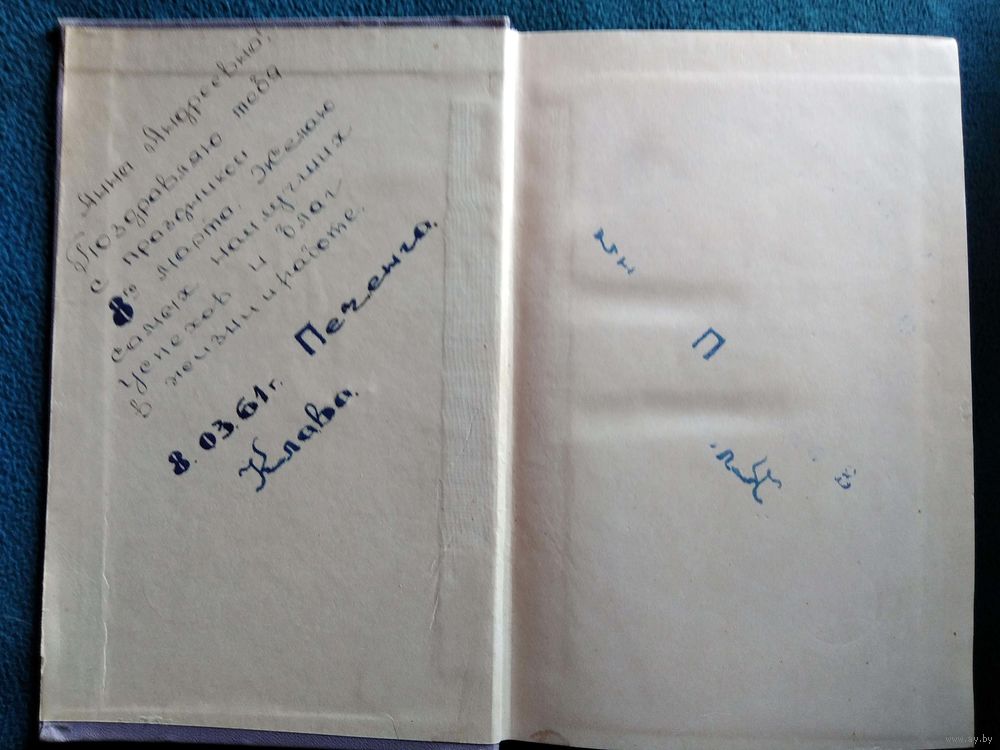 Анна Андреевна!
Поздравляю тебя
с праздником
8го марта. Желаю
самых наилучших
успехов и благ
в жизни и работе.
8.03.61г. Печенга.
Клава.
П
www.ay.by